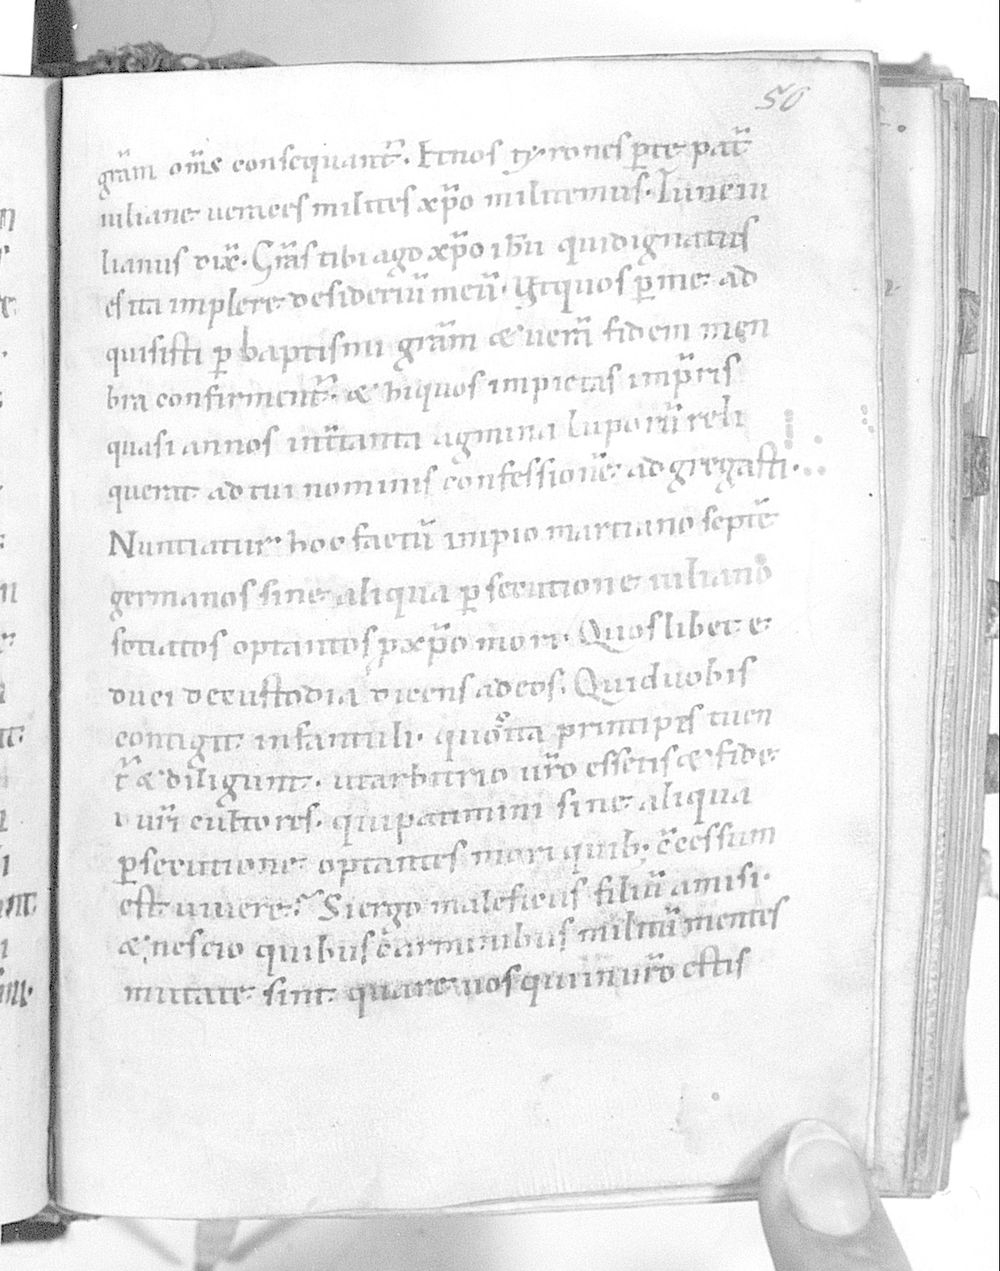 50
grãm om̃s consequant̃. Et nos tyrones per te pat̃
iuliane ueraces milites xp̃o militemus. Tunc iu
lianus dix̃. Grãs tibi ago xp̃e ih̃u qui dignatus
es ita implere desideriũ meũ. Ut quos p̱ me ad
quisisti p̱ baptismi grãm & uerã fidem men
bra confirment̃. & hi quos impietas imp̃ris
quasi annos int̃ tanta agmina luporũ reli
querat ad tui nominis confessionẽ ad gregasti.
Nuntiatur hoc factũ impio martiano septẽ
germanos sine aliqua p̱secutione iuliano
sotiatos optantes p xp̃o mori. Quos libet e
duci de custodia dicens ad eos. Quid uobis
contigit infantuli. quõ ita principes tuen
t̃ & diligunt. ut arbitrio ur̃o essetis & fide
i ur̃i cultores. qui patimini sine aliqua
p̱secutione optantes mori quib; c̃cessum
est uiuere. Si ergo maleficus filiũ amisi.
& nescio quibus carminibus militũ mentes
mutate sint quare uos qui in ur̃o estis